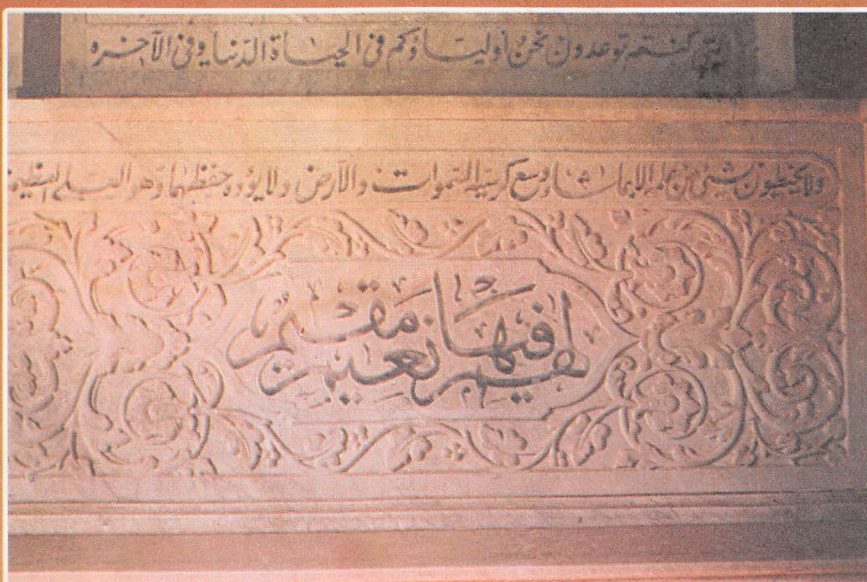 كنتم توعدون نحن أولياؤكم فى الحياة الدنيا وفى الآخرة
ولا يحيطون بشئ من علمه الا بما شاء وسع كرسيه السموات والأرض ولا يؤده حفظهما وهو العلى العظيم
لهم فيها نعيم مقيم